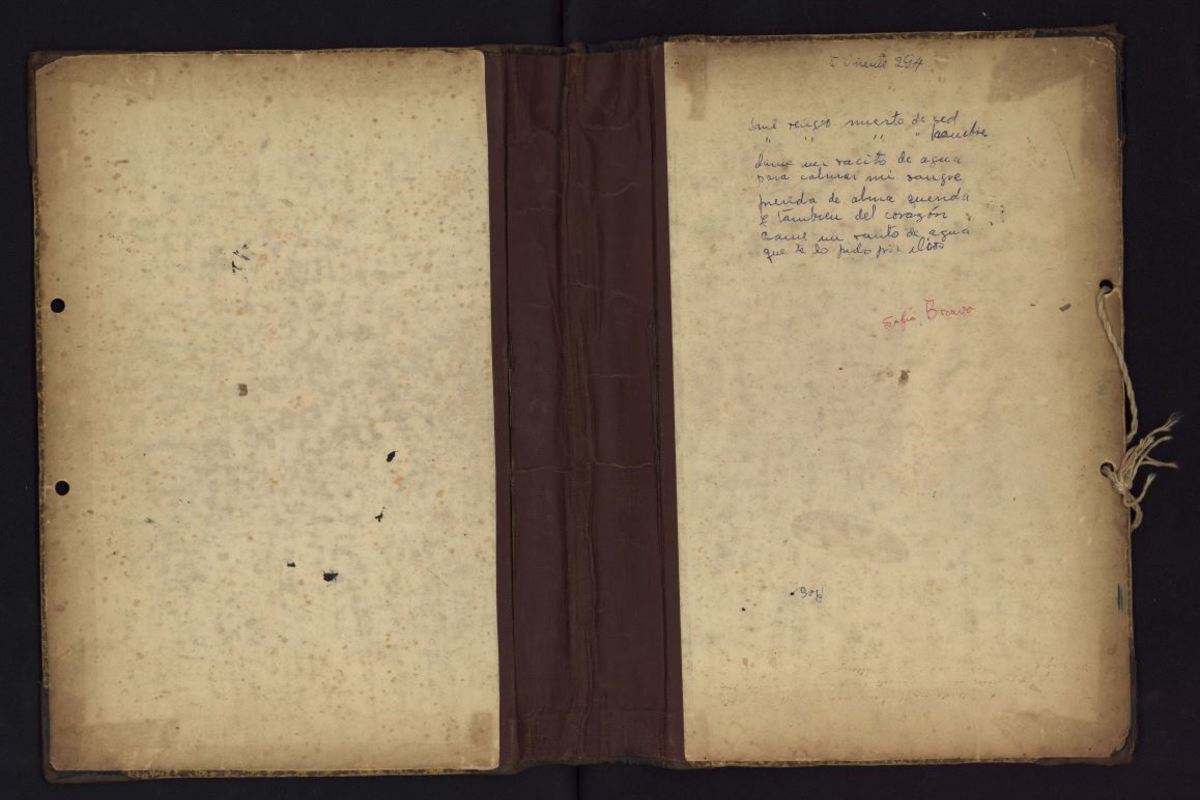 S Vicente 294
que vengo muerto de sed
" " " " hambre
dame un vacito de agua
para calmar mi sangre
prenda de alma querida
y tambien del corazón
dame un vacito de agua
que te lo pido por dios
Sofia Bravo